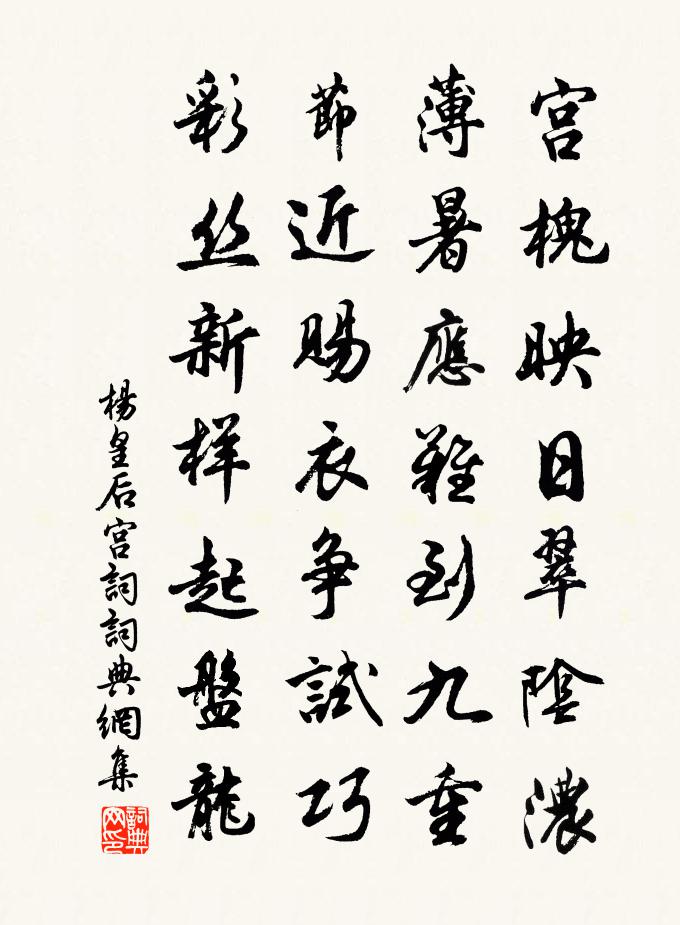 宮槐映日翠陰濃
薄暑應難到九重
節近賜衣爭試巧
彩丝新样起盤龍
楊皇后宮詞詞典網集
詞典网印